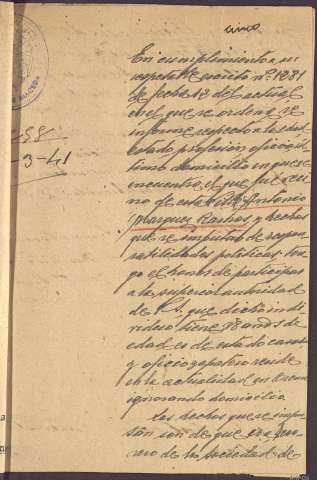 cinco
En cumplimiento a su
respetable escrito nº 1281
de fecha 12 del actual
en el que se ordena se
informe respecto a la edad
estado, profesión oficio y úl-
timo domicilio en que se
encuentre el que fue veci-
no de esta Villa Antonio
Marquez Ramos, y hechos
que se imputan de respon-
sabilidades políticas, ten-
go el honor de participar
a la superior autoridad
de V.S. que dicho indi-
viduo tiene 38 años de
edad es de estado casado
y oficio zapatero reside
en la actualidad en
ignorando domicilio.
Los hechos que se impu-
tan son de que era
de la Sociedad de
-3-41